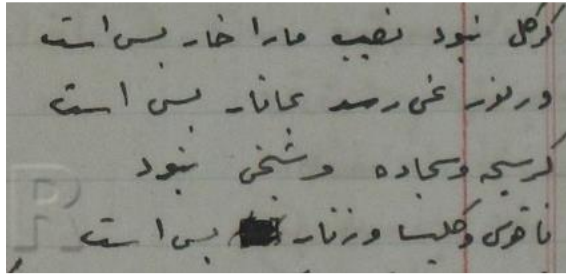 گر گل نبود نصیب ما را خار بس است
ور نور نمی رسد بما نار بس است
گر سبحه و سجاده و شیخی نبود
ناقوس و کلیسا و زنار بس است